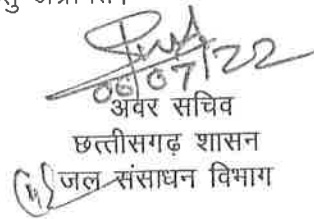 06/07/22
अवर सचिव
छत्तीसगढ़ शासन
जल संसाधन विभाग